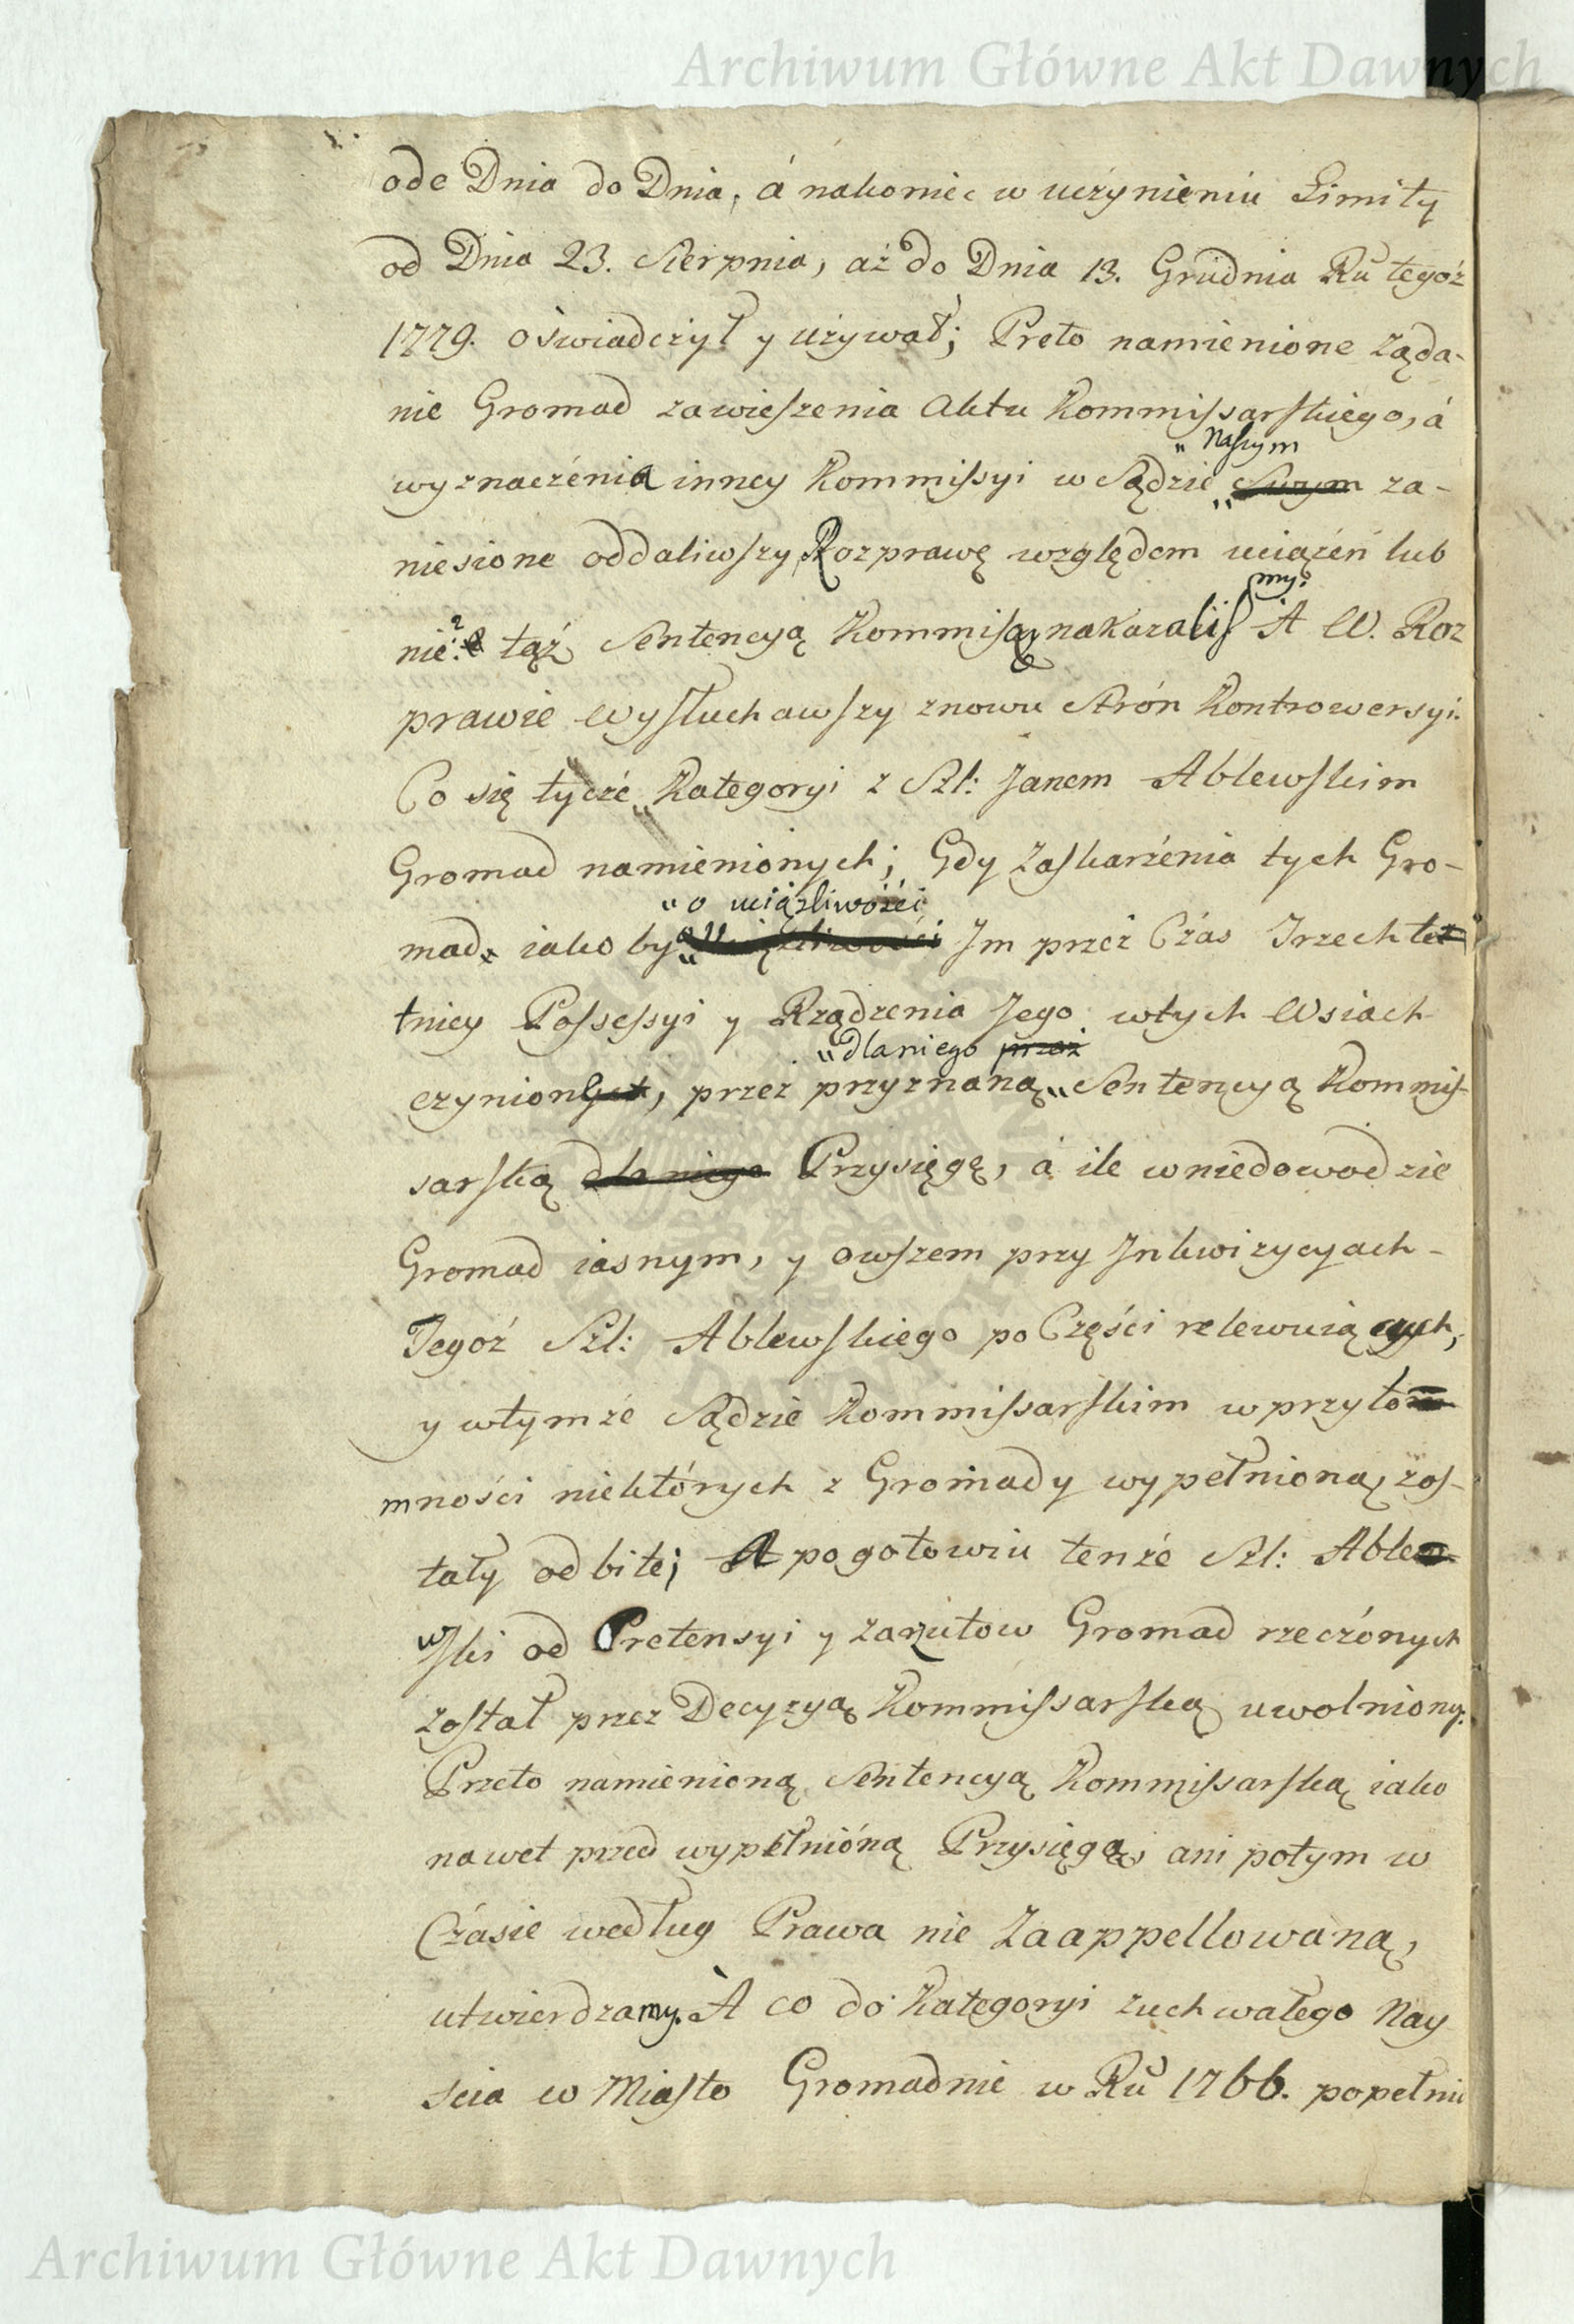 Archiwum Główne Akt Dawnych
ode Dnia do Dnia, á nakoniec w uczynieniu Limity
od Dnia 23. Sierpnia, aż do Dnia 13. Grudnia Ru tegoż
1779. oświadczył y używał; Preto namienione żąda-
nie Gromad zawieszenia Aktu Kommissarskiego, á
„ Naszym
wyznaczénia inney Kommissyi w Sądzie „ Swym za-
niesione oddaliwszy, Rozprawę względem uciążeń lub
my.
nie: tąż Sentencyą Kommiss: nakazaliś A W. Roz
prawie Wysłuchawszy znowu Strón Kontrowersyi.
Co się tycze „ Kategoryi z Szl: Janem Ablewskim
Gromad namienionych; Gdy Zaskarżenia tych Gro-
„ o uciążliwości
mad, iakoby „ Uciążliwości Jm przez Czas Trzechlet
tniey Possessyi y Rządzenia Jego wtych Wsiach
„ dlaniego przez
czynionych, przez przyznaną „ Sentencyą Kommis-
sarską dla niego Przysięgę, á ile w niedowodzie
Gromad iasnym, y owszem przy Jnkwizycyach-
Tegoż Szl: Ablewskiego po Części relewuiących,
y wtymże Sądzie Kommissarskim w przyto
mności niektórych z Gromady wypełnioną, zos-
tały odbite; A pogotowiu tenże Szl: Ablew-
wski od Pretensyi y zarzutow Gromad rzeczónych
został przez Decyzyą Kommissarską uwolniony.
Przeto namienioną Sentencyą Kommissarską iako
nawet przed wypełnióną Przysięgą, ani potym w
Czásie według Prawa nie Zaappellowaną,
utwierdzamy. A co do Kategoryi zuchwałego Nay
scia w Miasto Gromadnie w Ru 1766. popełnio
Archiwum Główne Akt Dawnych